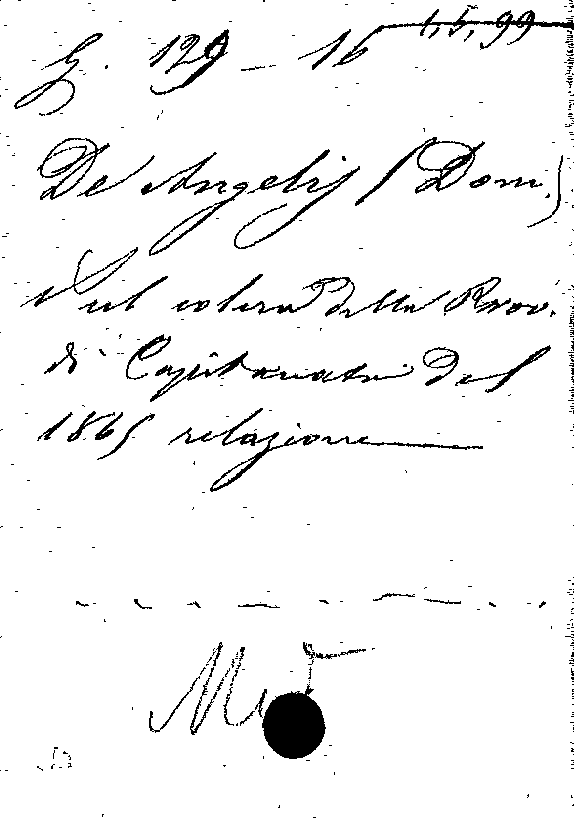 G. 129 - 16 1,5,99
De Angelis (Dom.)
Sul colera della Prov.
di Capitanata del
1865 relazione